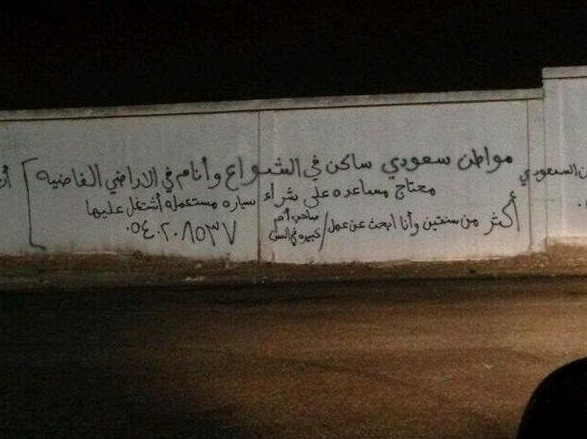 مواطن سعودي ساكن في الشواع وأنام في الاراضي الفاضيه
محتاج مساعده على شراء سياره مستعمله أشتغل عليها
أكثر من سنتين وأنا ابحث عن عمل / صاحب أم
كبيره في السن
٠٥٤٠٢٠٨٥٣٧
السعودي